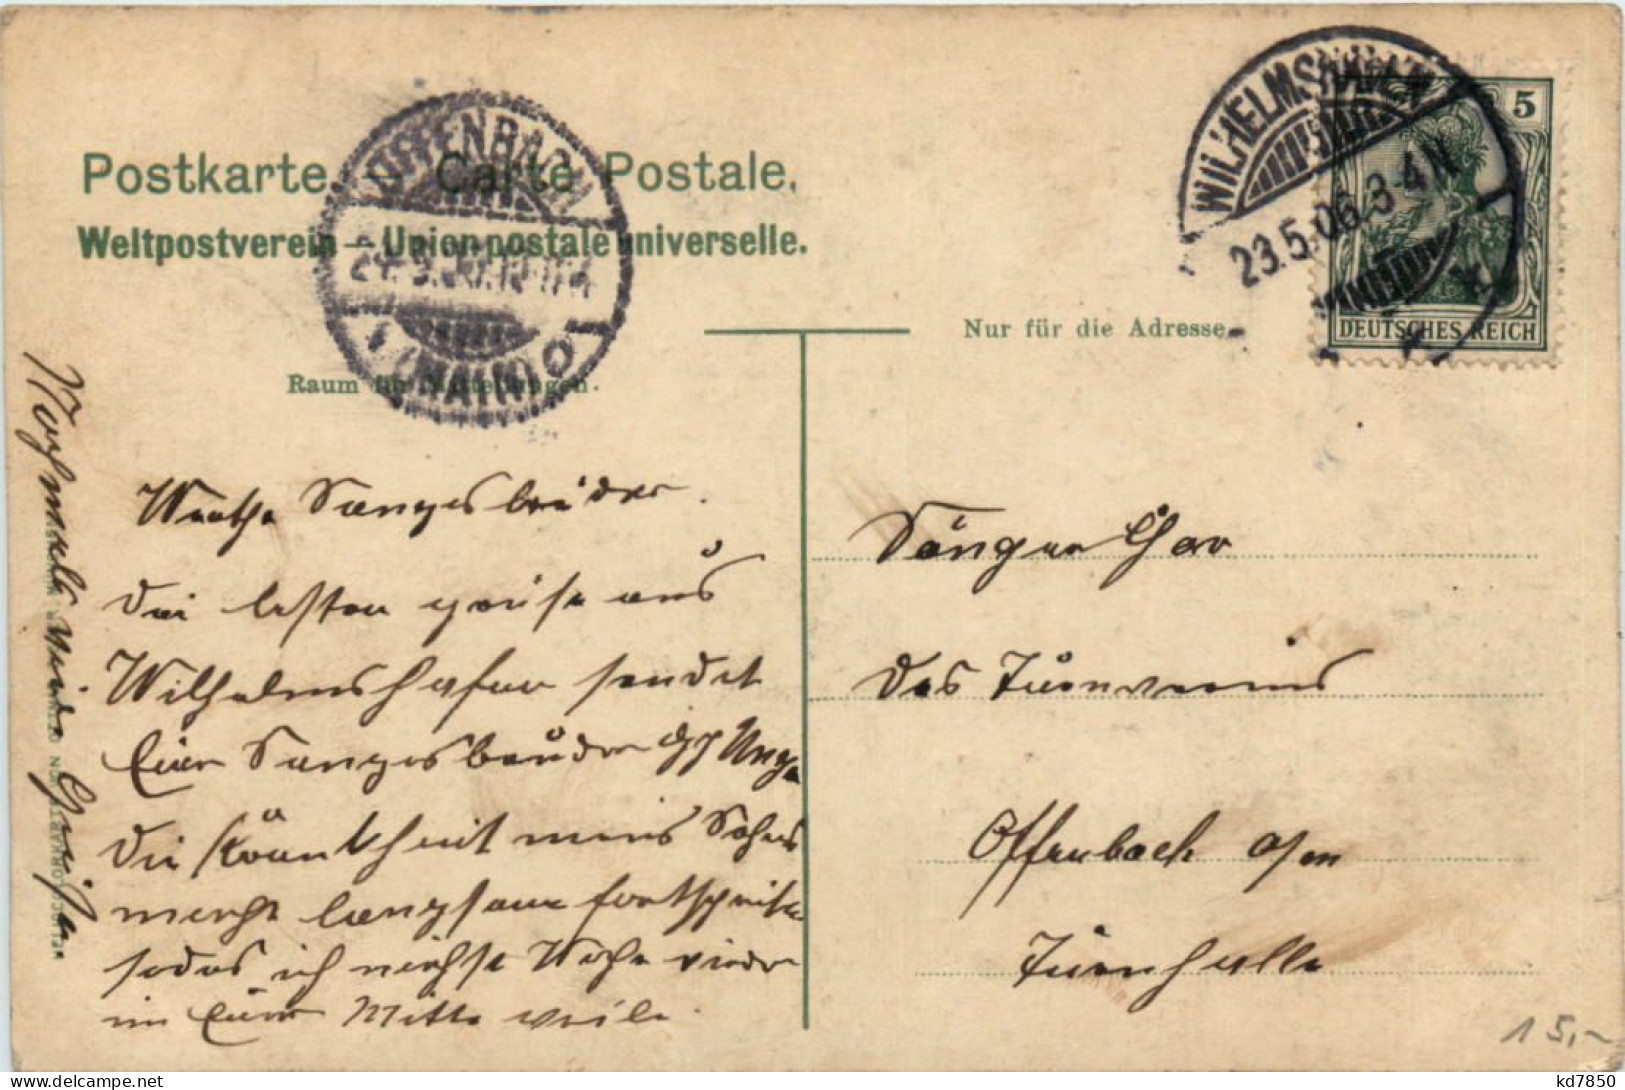 Postkarte. Carte Postale.
Weltpostverein – Union postale universelle.
OFFENBACH
(MAIN)
WILHELMSHAVEN
23.5.06.3-4N
5
DEUTSCHES REICH
Nur für die Adresse
Raum für Mitteilungen.
Werthe Sangesbrüder.
Die besten grüße aus
Wilhelmshafen sendet
Euer Sangesbruder
die Krankheit meines Sohnes
macht langsam fortschritte
sodas ich nächste Woche wieder
in Eurer Mitte weile.
Nochmals viele Grüße
Sänger Chor
des Turnvereins
Offenbach a/m
Turnhalle
15,-
kd7850